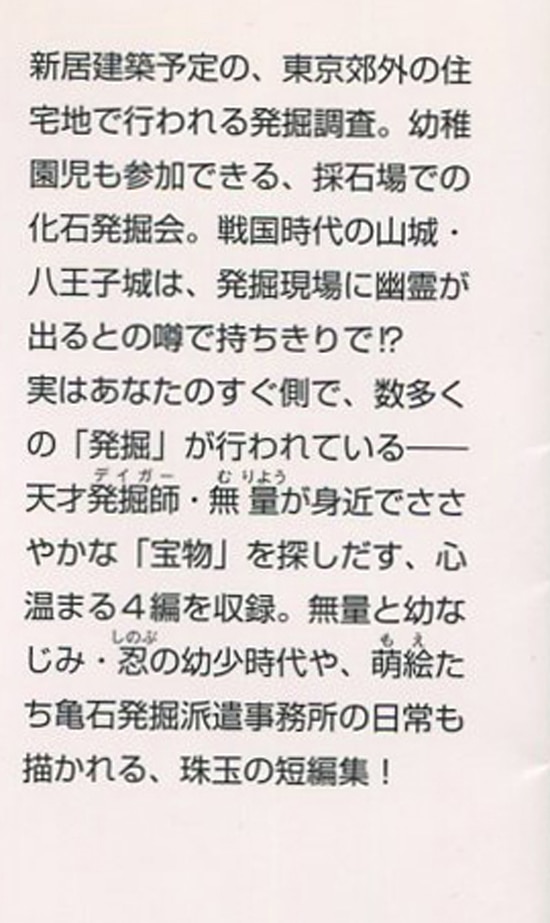 新居建築予定の、東京郊外の住
宅地で行われる発掘調査。幼稚
園児も参加できる、採石場での
化石発掘会。戦国時代の山城・
八王子城は、発掘現場に幽霊が
出るとの噂で持ちきりで!?
実はあなたのすぐ側で、数多く
の「発掘」が行われている――
ディガー　むりょう
天才発掘師・無量が身近でささ
やかな「宝物」を探しだす、心
温まる４編を収録。無量と幼な
しのぶ　もえ
じみ・忍の幼少時代や、萌絵た
ち亀石発掘派遣事務所の日常も
描かれる、珠玉の短編集！